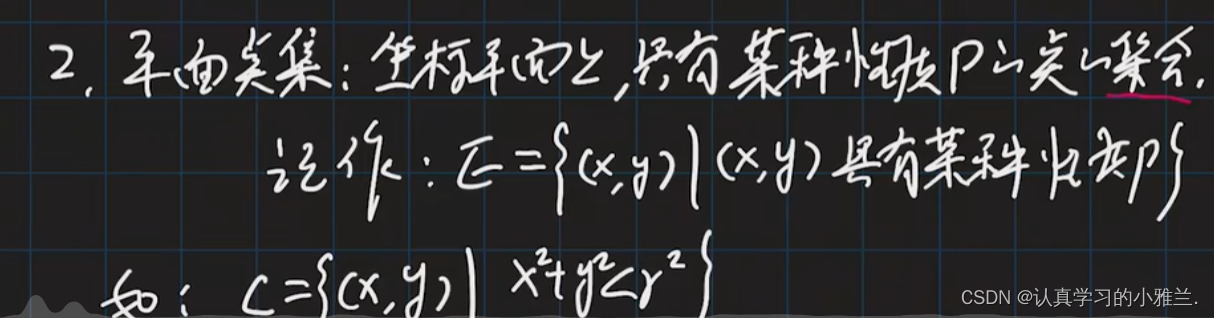 2. 平面点集:坐标平面上,具有某种性质P的点的集合.
记作:E={(x,y)|(x,y)具有某种性质P}
如:C={(x,y)|x²+y²<r²}
CSDN @认真学习的小雅兰.